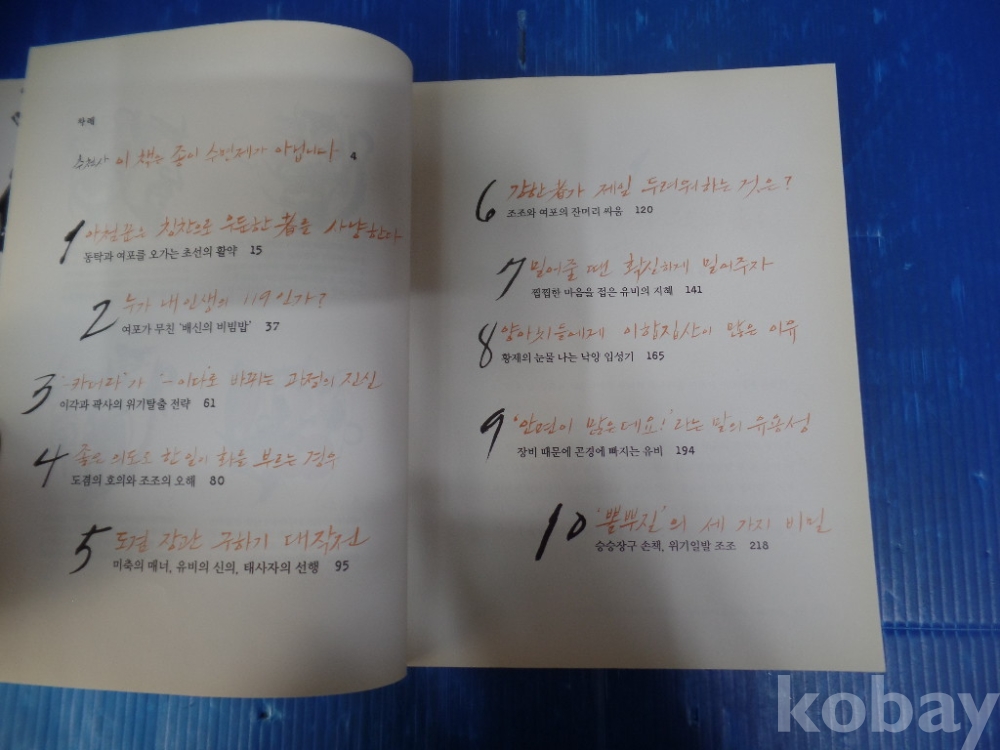 차례
추천사 이 책은 종이 수면제가 아닙니다 4
1 아첨꾼은 칭찬으로 우둔한 者을 사냥한다
동탁과 여포를 오가는 초선의 활약 15
2 누가 내 인생의 119인가?
여포가 무친 '배신의 비빔밥' 37
3 '-카더라'가 '-이다'로 바뀌는 과정의 진실
이각과 곽사의 위기탈출 전략 61
4 좋은 의도로 한 일이 화를 부르는 경우
도겸의 호의와 조조의 오해 80
5 도겸 장관 구하기 대작전
미축의 매너, 유비의 신의, 태사자의 선행 95
6 강한 者가 제일 두려워하는 것은?
조조와 여포의 잔머리 싸움 120
7 밀어줄 땐 확실하게 밀어주자
찝찝한 마음을 접은 유비의 지혜 141
8 양아치들에게 이합집산이 많은 이유
황제의 눈물 나는 낙양 입성기 165
9 '안면이 많은데요!'라는 말의 유용성
장비 때문에 곤경에 빠지는 유비 194
10 '뽐뿌질'의 세 가지 비밀
승승장구 손책, 위기일발 조조 218
kobay